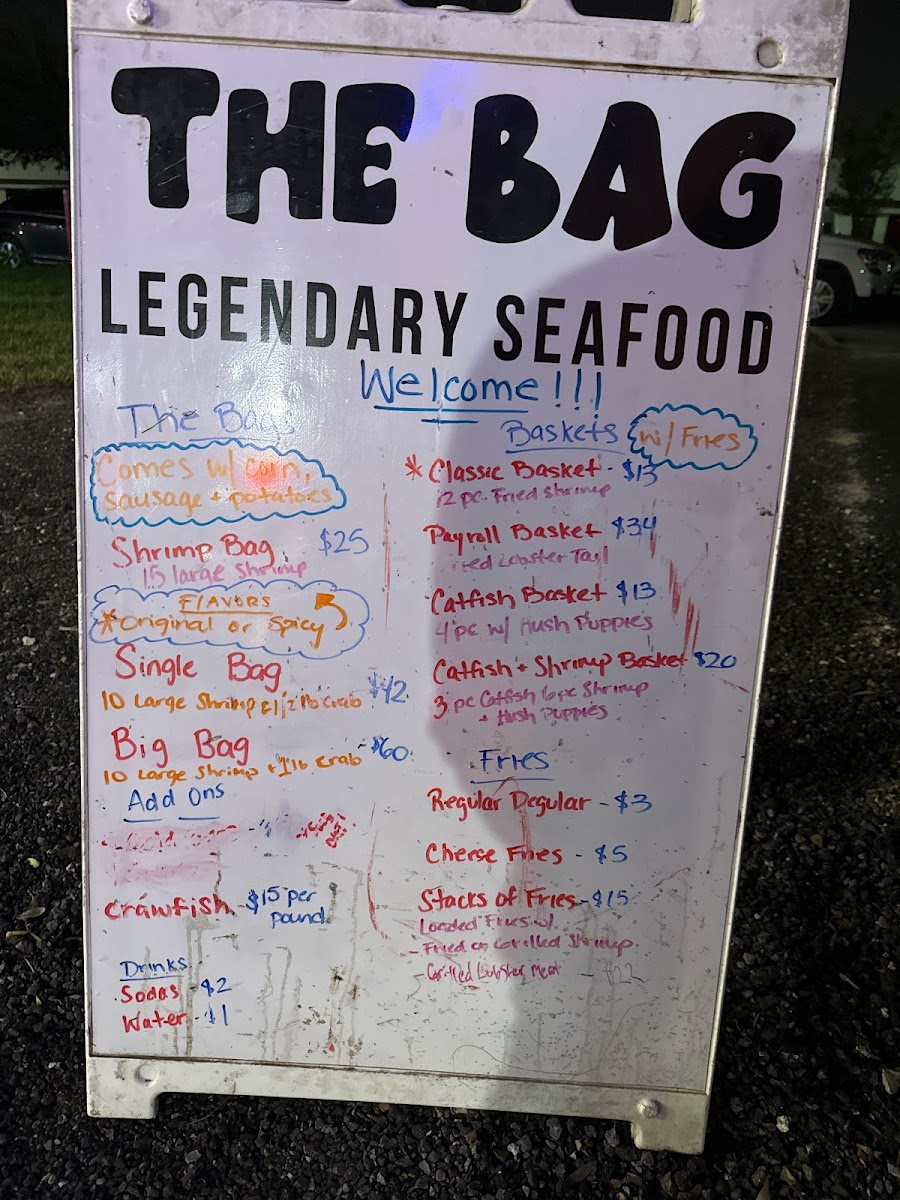 THE BAG
LEGENDARY SEAFOOD
Welcome!!!
The Bags
Comes w/ corn,
sausage + potatoes
Shrimp Bag $25
15 large shrimp
FLAVORS
*Original or Spicy
Single Bag
10 Large Shrimp & 1/2 lb Crab $42
Big Bag
10 Large Shrimp + 1 lb Crab - $60
Add Ons
Crawfish - $15 per
pound
Drinks
Sodas - $2
Water - $1
Baskets w/ Fries
* Classic Basket - $13
12 pc. Fried Shrimp
Payroll Basket $34
Lobster Tail
Catfish Basket $13
4 pc w/ Hush Puppies
Catfish + Shrimp Basket $20
3 pc Catfish 6 pc Shrimp
+ Hush Puppies
Fries
Regular Degular - $3
Cheese Fries - $5
Stacks of Fries - $15
Loaded Fries w/
- Fried or Grilled Shrimp
- Grilled Lobster Meat - $22